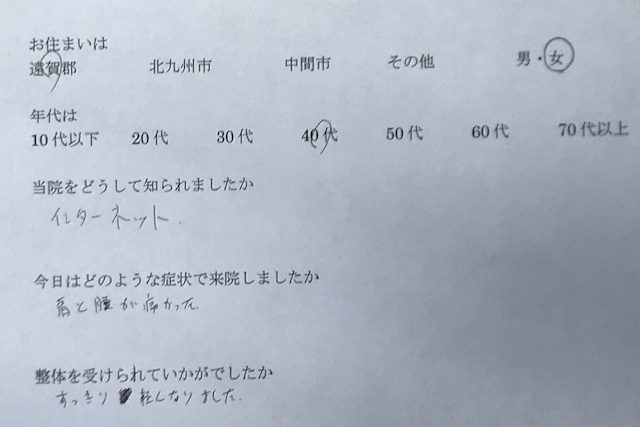 お住まいは
遠賀郡 北九州市 中間市 その他 男・女
年代は
10代以下 20代 30代 40代 50代 60代 70代以上
当院をどうして知られましたか
インターネット.
今日はどのような症状で来院しましたか
肩と腰が痛かった.
整体を受けられていかがでしたか
すっきり 軽くなりました.